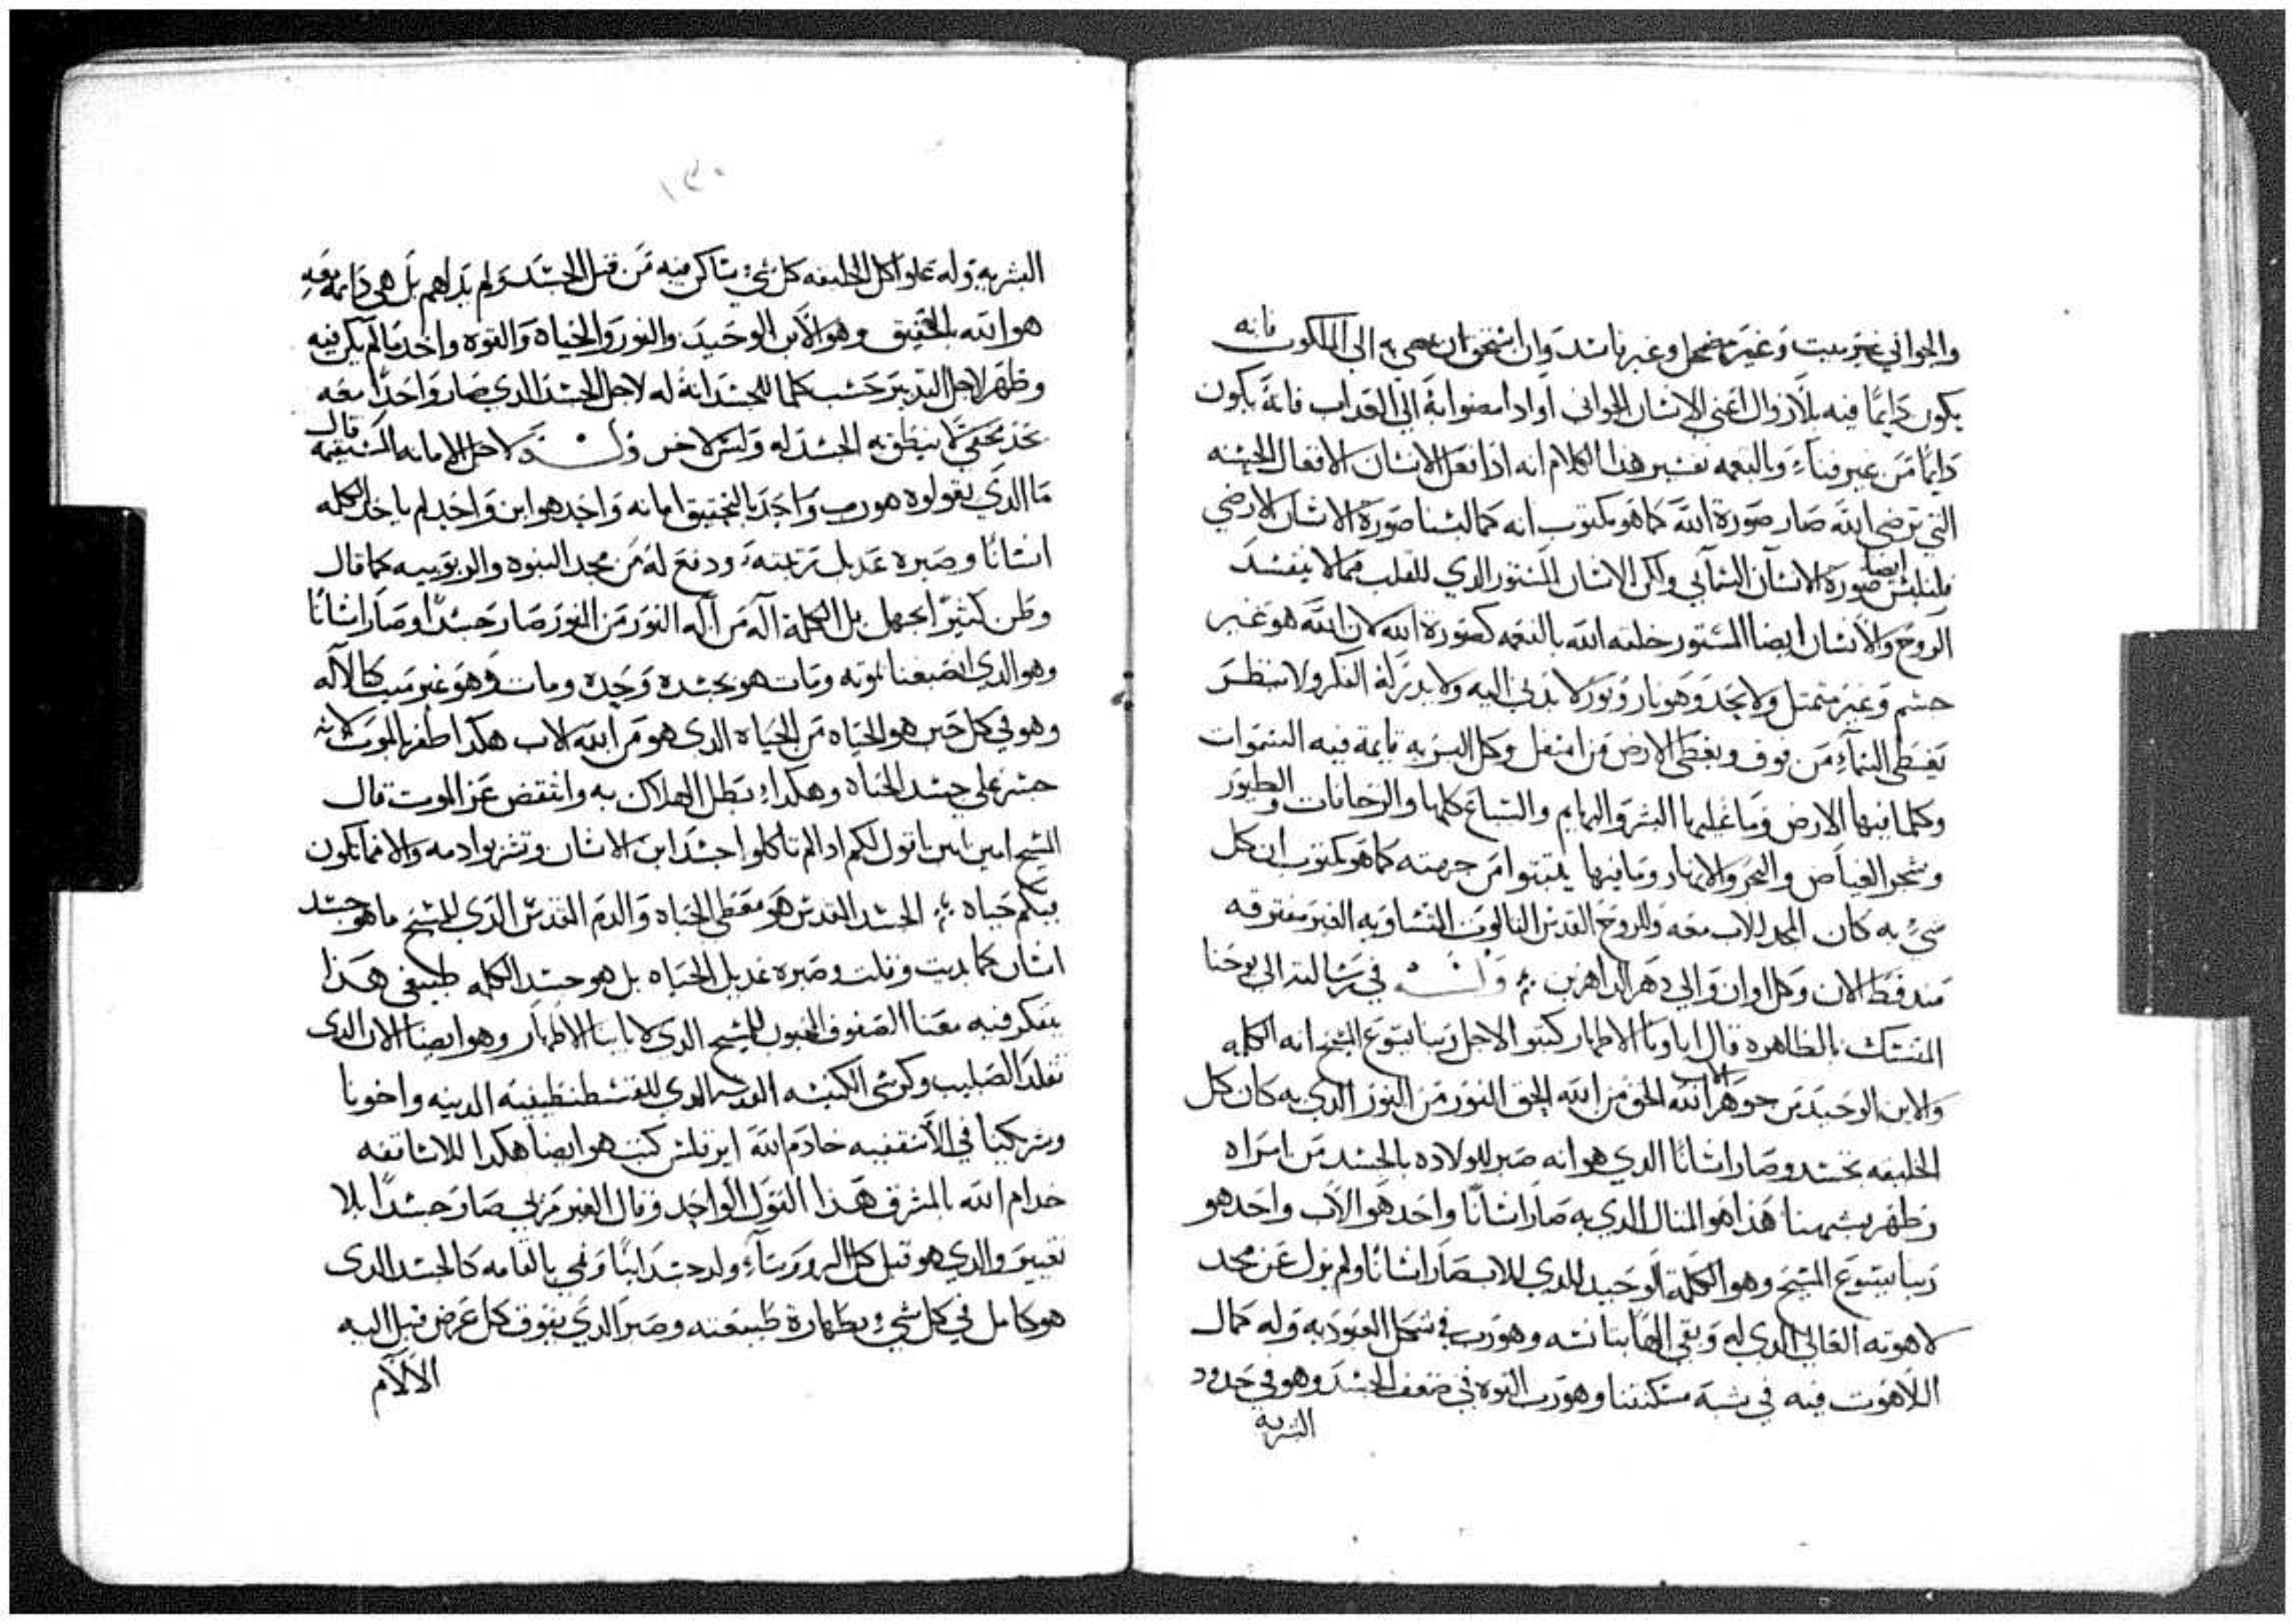 والجواني غير ميت وغير مضمحل وغير فاسد وان استحق ان يمضي به الى الملكوت فانه
يكون دايمًا فيه بلا زوال اعني الانسان الجواني او اذا مضوا به الى العداب فانه يكون
دايمًا من غير فناء وبالنعمه تفسير هذا الكلام انه اذا فعل الانسان الافعال الحسنه
التي ترضي الله صار صورة الله كما هو مكتوب انه كما لبسنا صورة الانسان الارضي
فلنلبس ايضا صورة الانسان السمآيي ولكن الانسان المستور الدي للقلب فمالا يفسد
الروح والانسان ايضا المستور خلقته الله بالنعمه كصورة الله لان الله هو غير
جسم وغير متمتل ولا يحد وهو نار ونور لا يدنى اليه ولا يدركه الفكر ولا ينظر
يغطي السمآء من فوق ويغطي الارض من اسفل وكل البريه قايمة فيه السموات
وكلما فيها الارض وما عليها البشر والبهايم والسباع كلها والزحافات والطيور
وشجر الغياض والبحر والانهار وما فيها يتبتوا من جهته كما هو مكتوب ان كل
شيء به كان المجد للاب معه والروح القدس التالوت المتساويه الغير مفترقه
مند قط الان وكل اوان والي دهر الداهرين وله في رسالته الى يوحنا
المتمسك بالظاهره قال اباونا الاطهار كتبوا لاجل ربنا يسوع المسيح انه الكلمه
والابن الوحيد من جوهر الله الاب الحق من الله الحق النور من النور الدي به كان كل
الخليقه تجسد وصار انسانًا الدي هو انه صبر للولاده بالجسد من امراه
وظهر بشبهنا هذا هو المتال الدي به صار انسانًا واحد هو الاب واحد هو
ربنا يسوع المسيح وهو الكلمة الوحيد الدي للاب صار انسانًا ولم يزل عن مجد
لاهوته العالي الدي له وبقي الهًا بتانسه وهو رب في شكل العبوديه وله كمال
اللاهوت فيه في شبه مسكنتنا وهو رب القوه في ضعف الجسد وهو في حدود
البشريه
١٣٠
البشريه وله علوا كل الخليقه كل شيء ساكن فيه من قبل الجسد ولم بل هي دايمه معه
هو الله بالحقيق وهو الابن الوحيد والنور والحياه والقوه واخد مالم يكن فيه
وظهر لاجل التدبير حسب كلما للجسد انه له لاجل الجسد الدي صار واحدًا معه
ينطق به الجسد له وليس لاخر وله ولاجل الامانه المستقيمه قال
ما الدي يقولوه هو رب واحد بالتحقيق امانه واحده هو ابن واحد لم ياخد الكلمه
انسانًا وصيره عديل ترتيبته ودفع له من مجد البنوه والربوبيه كما قال
وظن كتيرًا بجهل بل الكلمة اله من اله النور من النور صار جسدًا وصار انسانًا
وهو الدي اصبغنا بموته ومات هو بجسده وحده ومات وهو غير ميت كالاله
وهو في كل حين هو الحياه من الحياه الدي هو من الله الاب هكدا ظفر بالموت لانه
جسر على جسد الحياه وهكداء بطل الهلاك به وانتقض عز الموت قال
المسيح امين امين اقول لكم ادا لم تاكلوا جسد ابن الانسان وتشربوا دمه والا فما تكون
فيكم حياه الجسد المقدس هو معطي الحياه والدم المقدس الدي للمسيح ما هو جسد
انسان كما بديت وقلت وصيره عديل الحياه بل هو جسد الكلمه طبيعي هذا
يفكر فيه معنا الصفوف المحبون للمسيح الدي لابابنا الاطهار وهو ايضا الان الدي
تقلد الصليب وكرسي الكنيسه المقدسه الدي للقسطنطينيه المدينه واخونا
وشريكنا في الاسقفيه خادم الله ابرقلس كتب هو ايضا هكدا للاساقفه
خدام الله بالمشرق هذا القول الواحد وقال الغير مرئي صار جسدًا بلا
تغيير والدي هو قبل كل الدهور ولد جسدانيًا ونمي بالقامه كالجسد الدى
هو كامل في كل شيء بطهارة طبيعته وصبر الدي يفوق كل عرض قبل اليه
الالآم